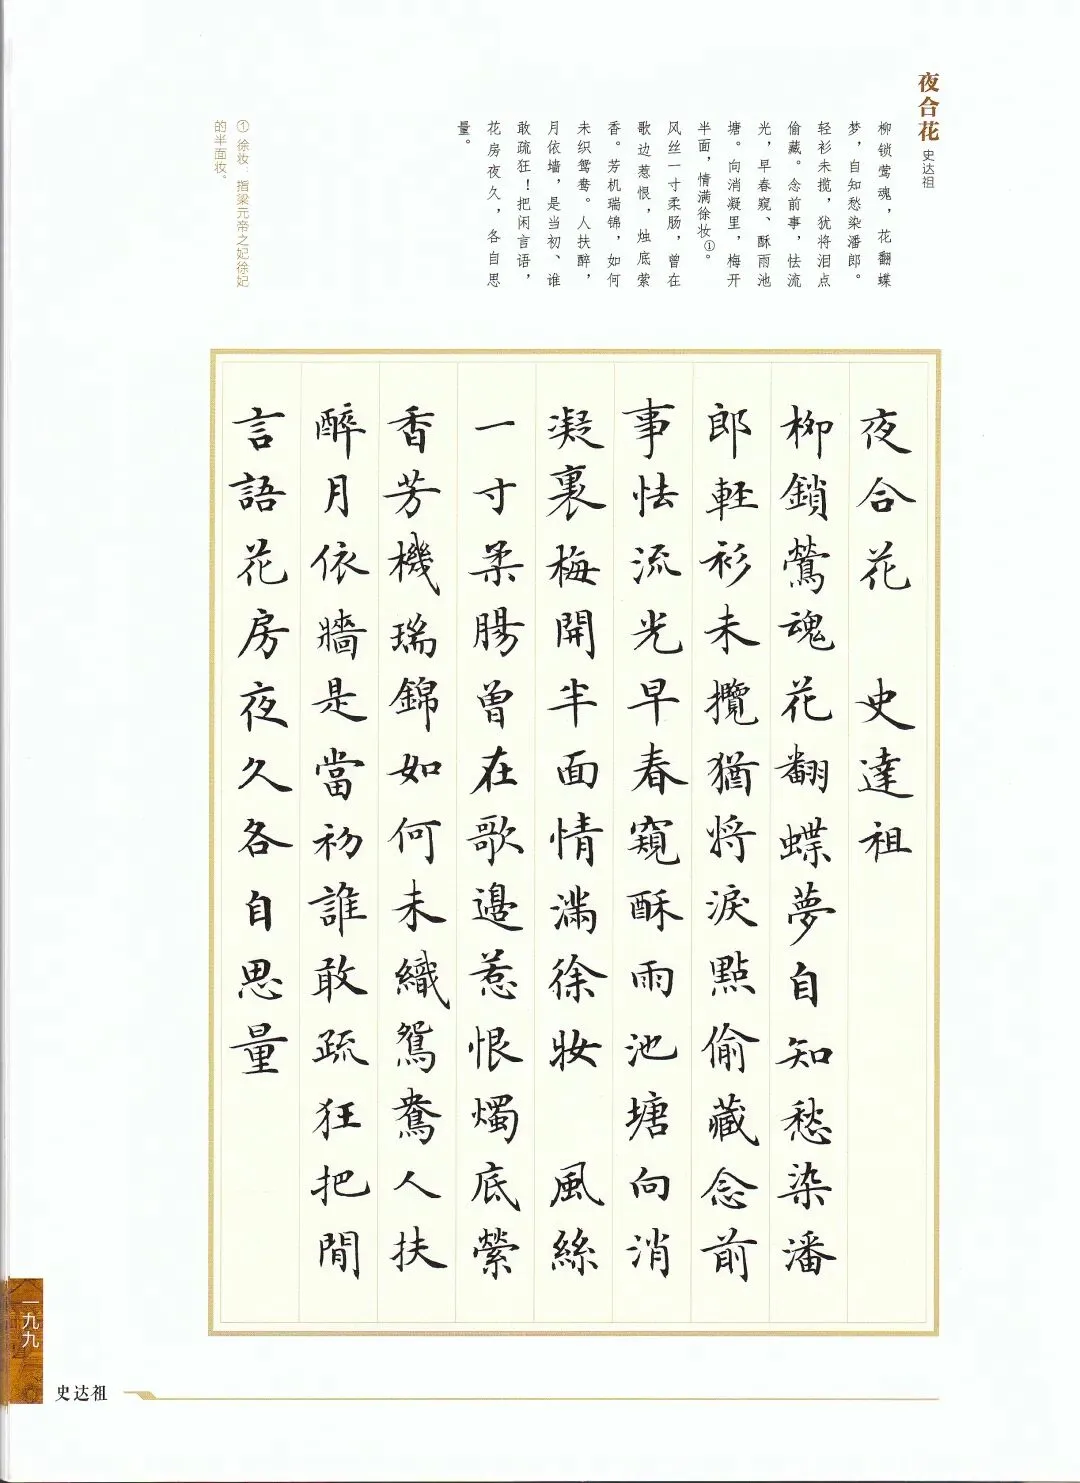 夜合花
史达祖
柳锁莺魂，花翻蝶
梦，自知愁染潘郎。
轻衫未揽，犹将泪点
偷藏。念前事，怯流
光，早春窥、酥雨池
塘。向消凝里，梅开
半面，情满徐妆①。
风丝一寸柔肠，曾在
歌边惹恨，烛底萦
香。芳机瑞锦，如何
未织鸳鸯。人扶醉，
月依墙，是当初、谁
敢疏狂！把闲言语，
花房夜久，各自思
量。
① 徐妆：指梁元帝之妃徐妃
的半面妆。
夜合花 史達祖
柳鎖鶯魂花翻蝶夢自知愁染潘
郎輕衫未攬猶將淚點偷藏念前
事怯流光早春窺酥雨池塘向消
凝裏梅開半面情滿徐妝 風絲
一寸柔腸曾在歌邊惹恨燭底縈
香芳機瑞錦如何未織鴛鴦人扶
醉月依牆是當初誰敢疏狂把閒
言語花房夜久各自思量
一九九
史达祖